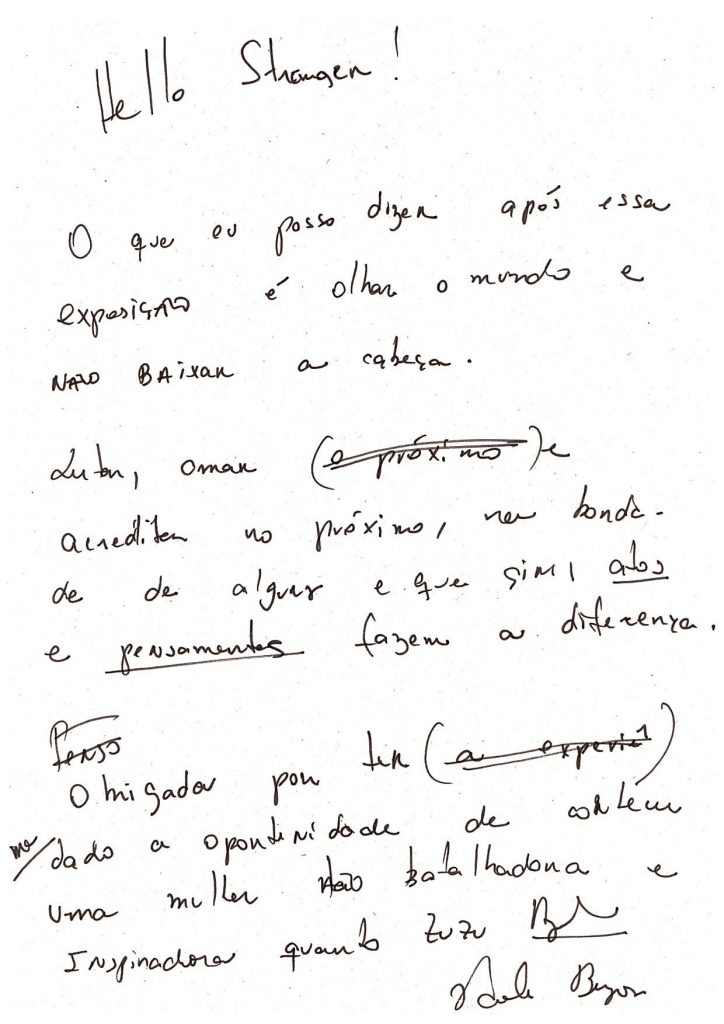 Hello Stranger!
O que eu posso dizer após essa
exposição é olhar o mundo e
não baixar a cabeça.
Lutar, amar (o próximo) e
acreditar no próximo, na bonda-
de de alguns e que sim, atos
e pensamentos fazem a diferença.
Penso
Obrigada por ter (a experiê)
me dado a oportunidade de
uma mulher tão batalhadora e
Inspiradora quanto Zuzu